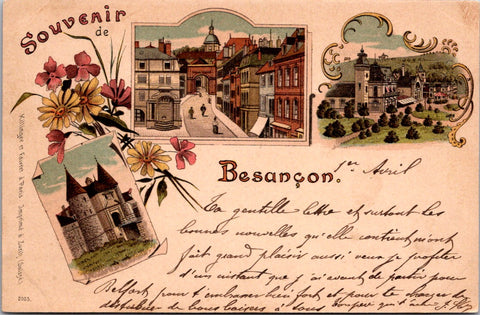 Souvenir
de
Besançon.
1er Avril
Ta gentille lettre et surtout les
bonnes nouvelles qu'elle contient m'ont
fait grand plaisir aussi veux je profiter
d'un instant que j'ai avant de partir pour
Belfort pour t'embrasser bien fort et pour te charger de
de bons baisers à tous
2005.